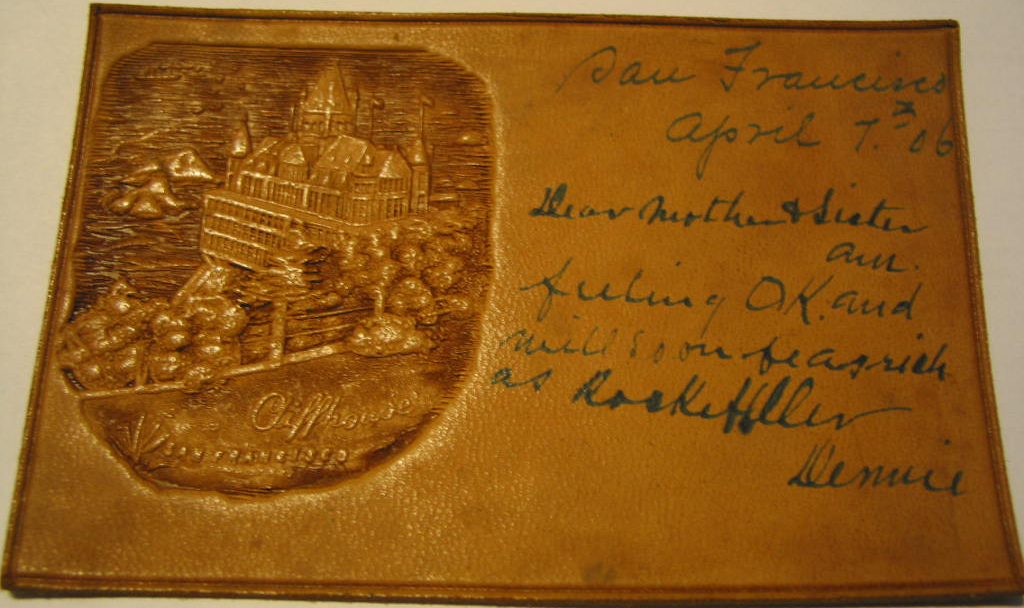 San Francisco
April 7th 06
Dear Mother & Sister
am.
feeling OK. and
will soon be as rich
as Rockefeller
Dennie
Cliffhouse
SAN FRANCISCO